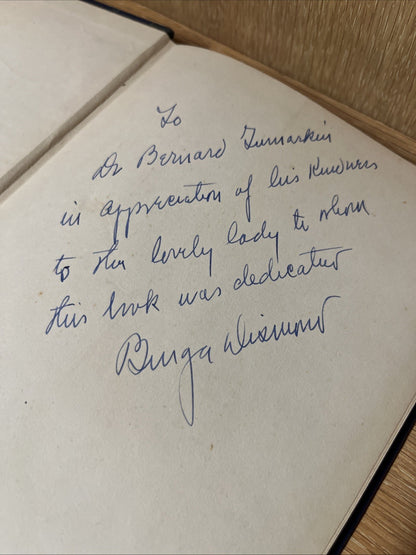 To
Dr Bernard Tumarkin
in appreciation of his kindness
to the lovely lady to whom
this book was dedicated
Binga Dismond